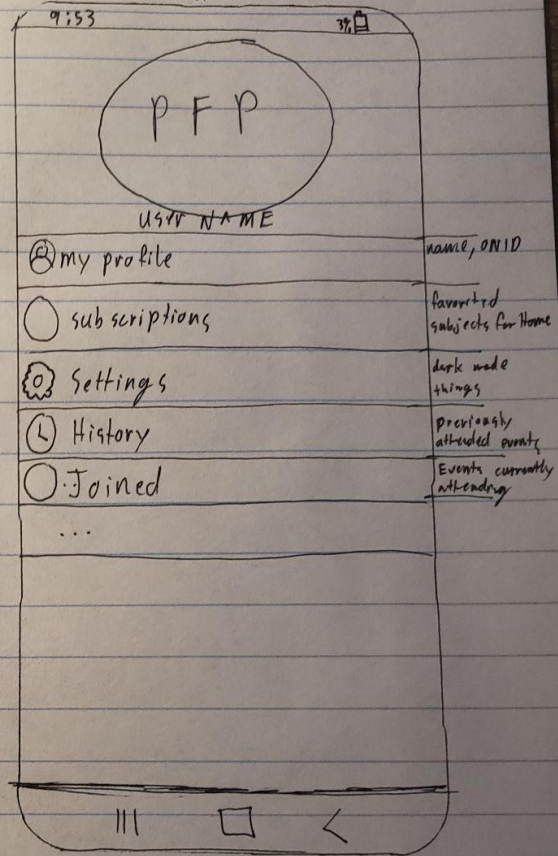 9:53
3%
PFP
USER NAME
my profile
name, ONID
subscriptions
favorited
subjects for Home
Settings
dark mode
things
History
previously
attended events
Joined
Events currently
attending
...